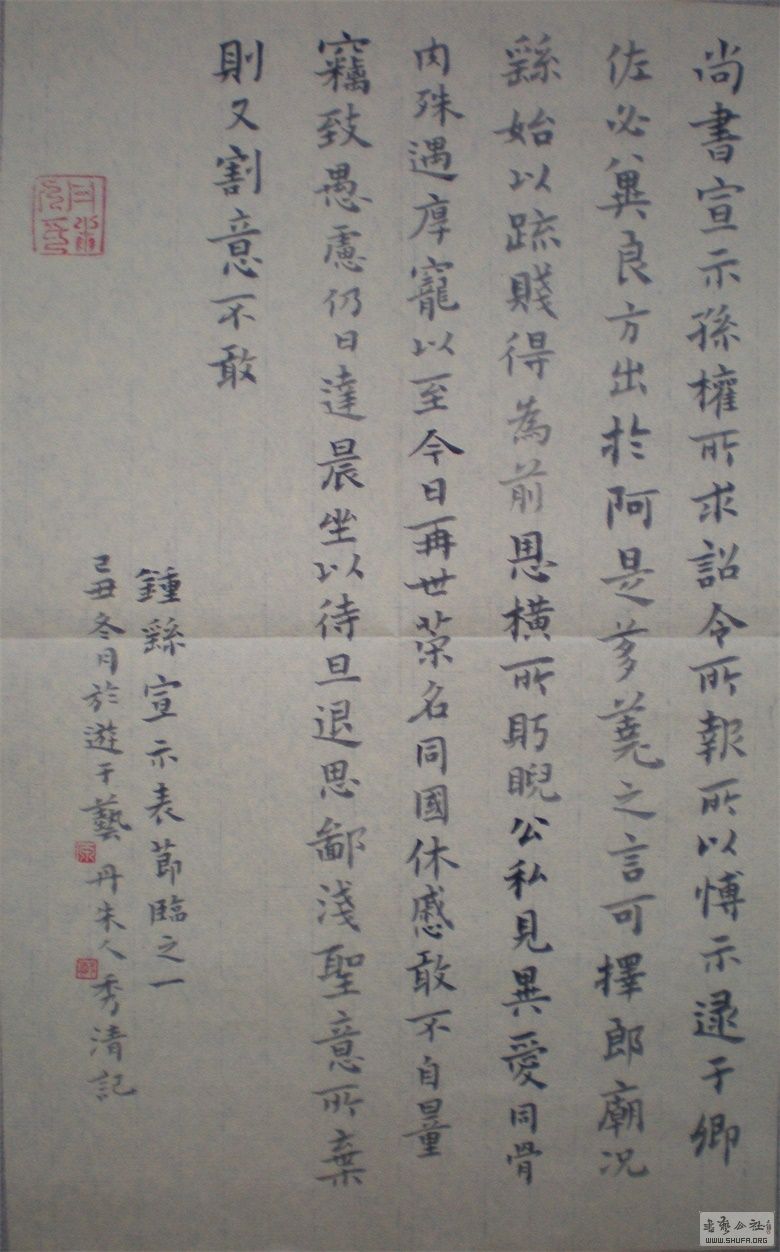 尚書宣示孫權所求詔令所報所以博示逯于卿
佐必冀良方出於阿是芻蕘之言可擇郎廟況
繇始以疏賤得為前恩橫所盱睨公私見異愛同骨
肉殊遇厚寵以至今日再世榮名同國休慼敢不自量
竊致愚慮仍日達晨坐以待旦退思鄙淺聖意所棄
則又割意不敢
鍾繇宣示表節臨之一
己丑冬月於遊于藝 丹朱人 秀清記
WWW.SHUFA.ORG